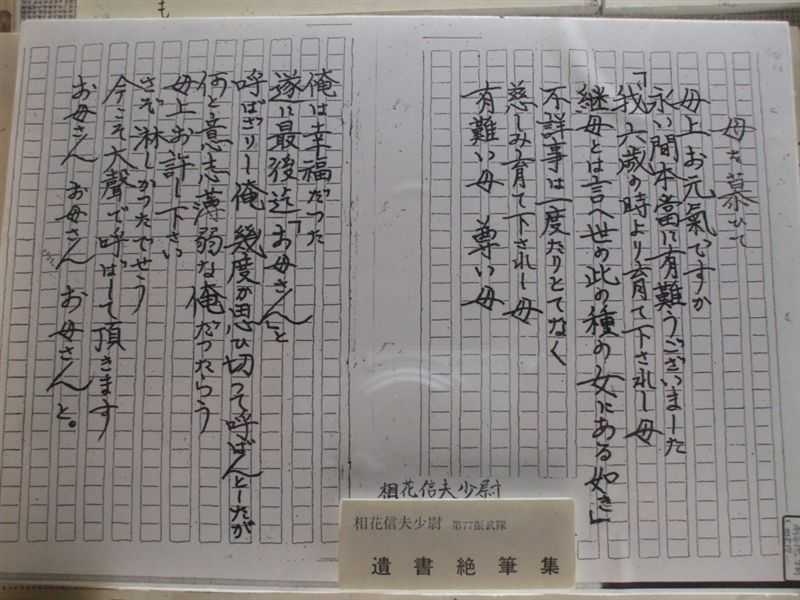 母を慕ひて
母上お元氣ですか
永い間本當に有難うございました
「我六歳の時より育て下されし母
継母とは言へ世の此の種の女にある如き」
不詳事は一度たりとてなく
慈しみ育て下されし母
有難い母 尊い母
俺は幸福だつた
遂に最後迄「お母さん」と
呼ばざりし俺 幾度か思ひ切つて呼ばんとしたが
何と意志薄弱な俺だつたらう
母上お許し下さい
さぞ淋しかつたでせう
今こそ大聲で呼ばして頂きます
お母さん お母さん お母さんと。
相花信夫少尉
相花信夫少尉 第77振武隊
遺書絶筆集
も